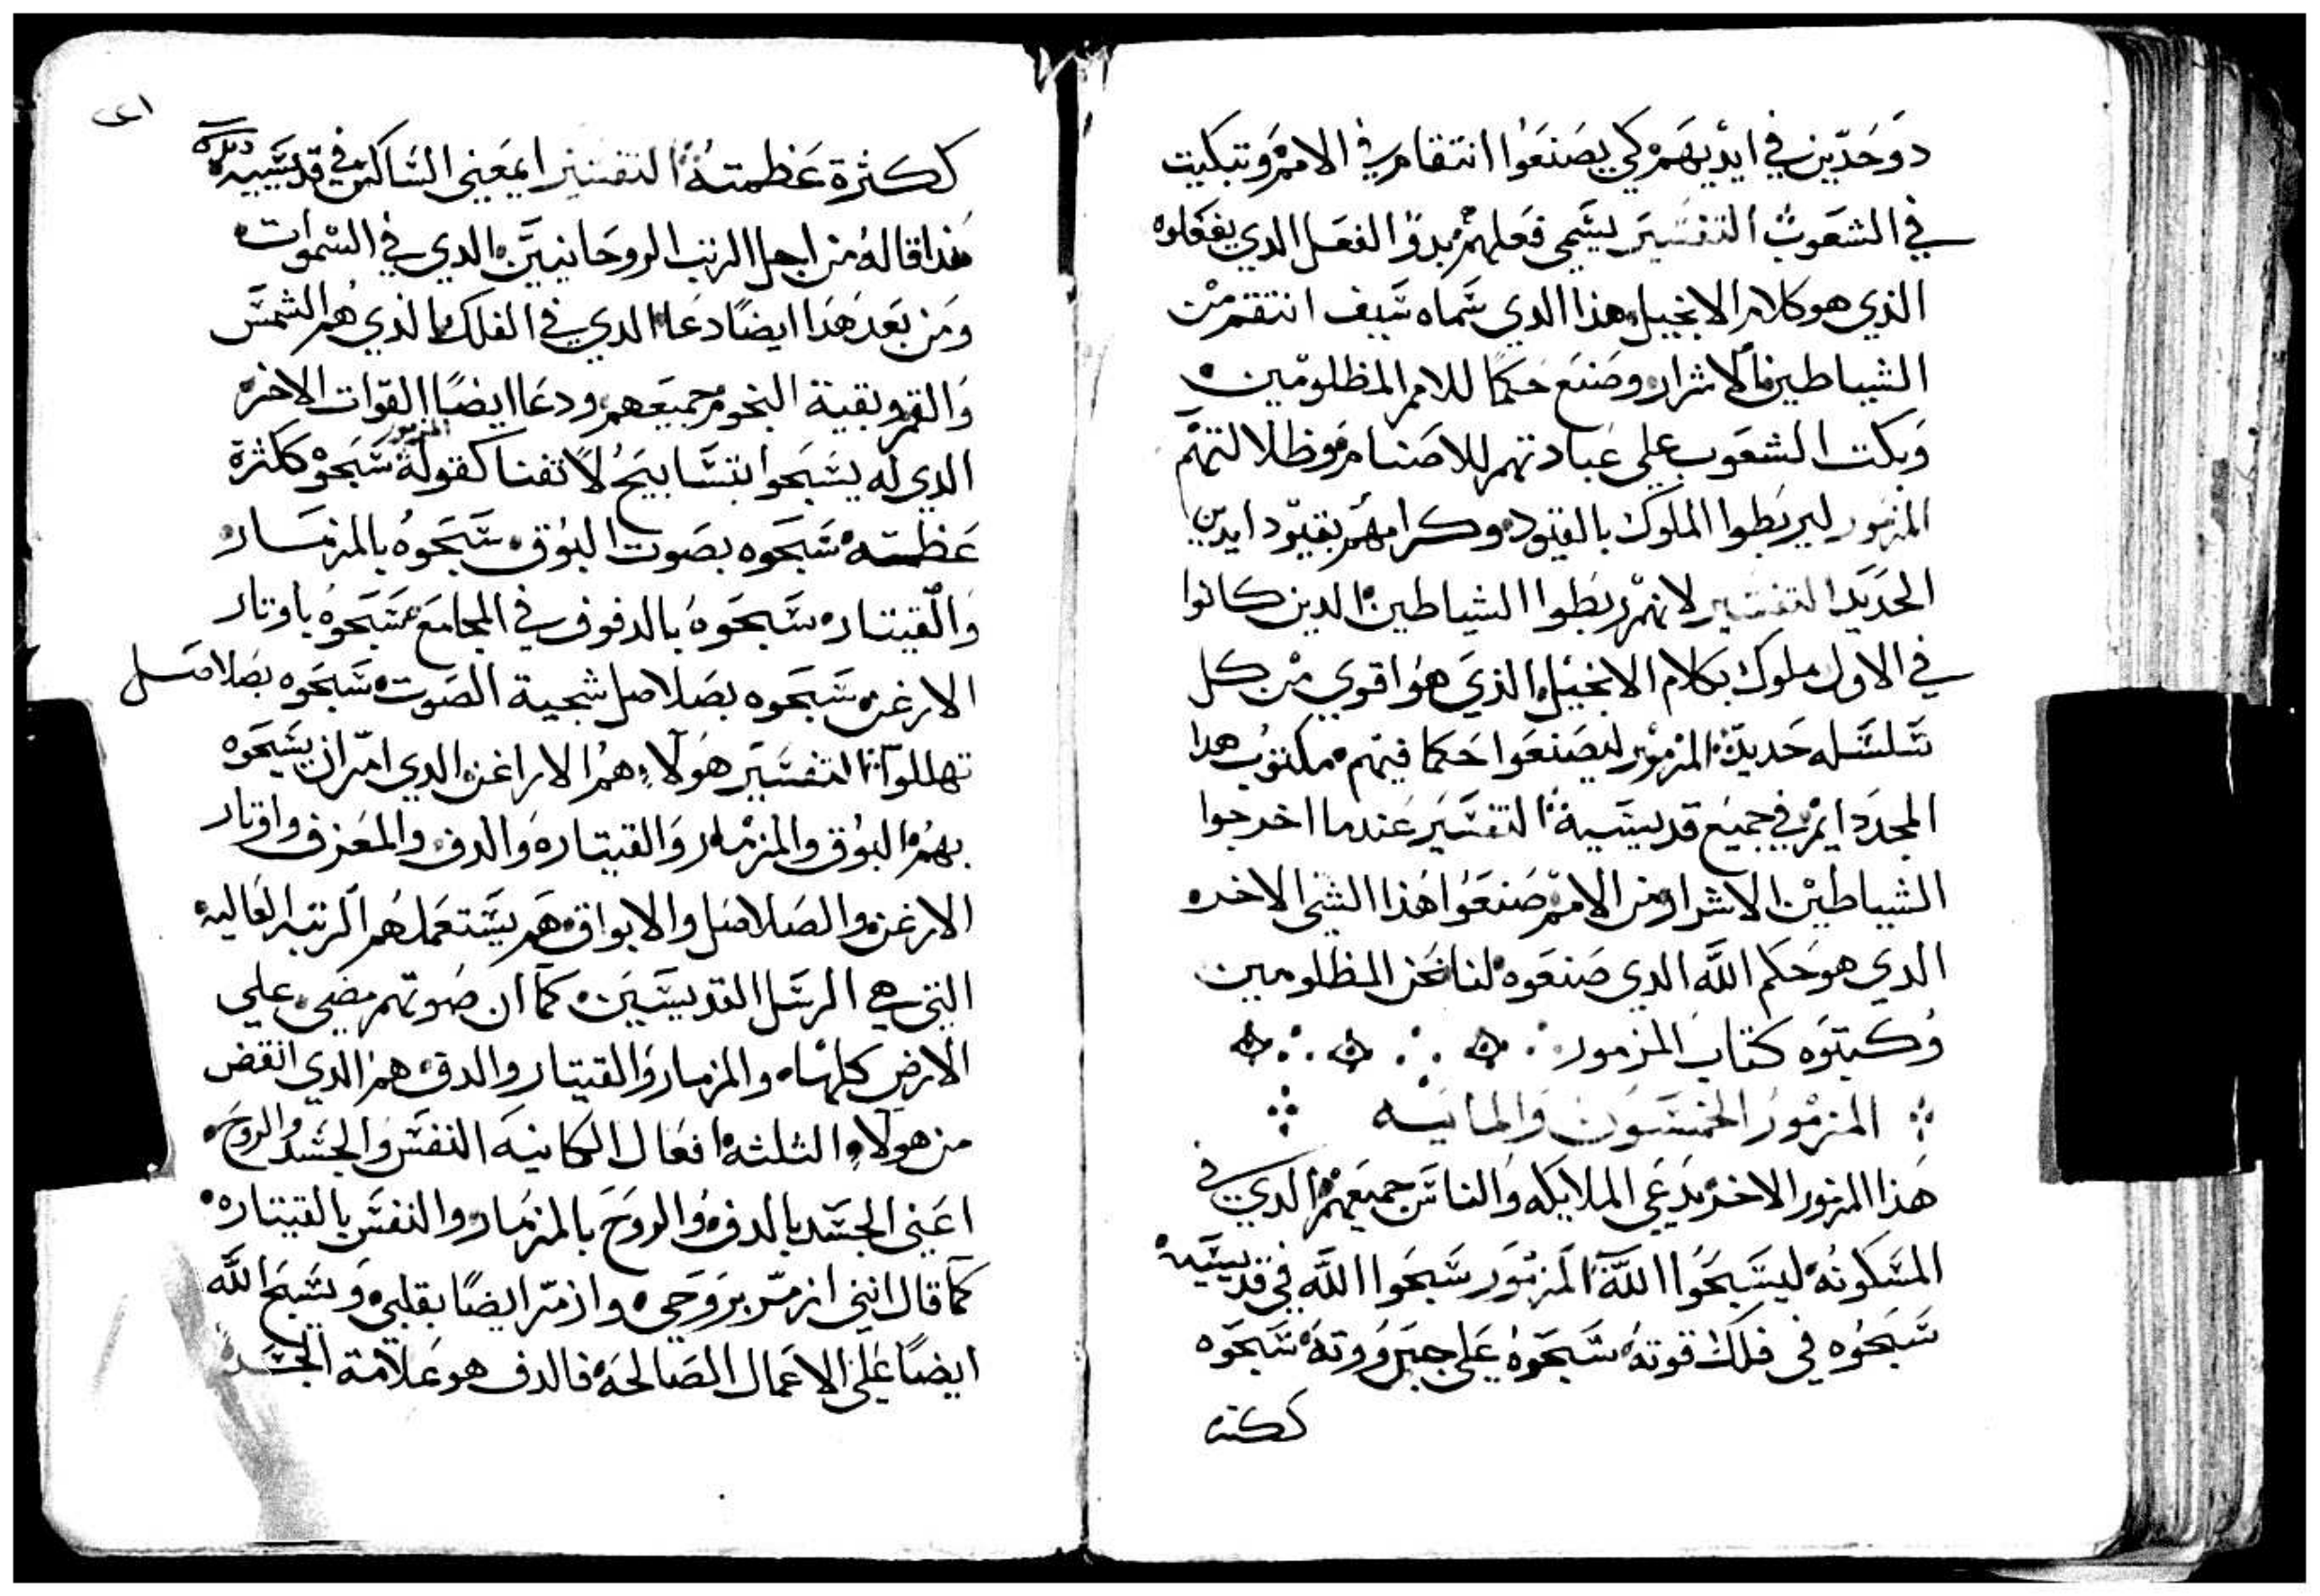 دو حدين في ايديهم كي يصنعوا انتقام في الامم وتبكيت
في الشعوب التفسير يسمي فعلهم بدو الفعل الدي يفعلوه
الذي هو كلام الانجيل هذا الدي سماه سيف انتقم من
الشياطين الاشرار وصنع حكما للامم المظلومين
وبكت الشعوب علي عبادتهم للاصنام وظلالتهم
المزمور ليربطوا الملوك بالقيود وكرامهم بقيود ايدين
الحديد التفسير لانهم ربطوا الشياطين الدين كانوا
في الاول ملوك بكلام الانجيل الذي هو اقوي من كل
سلسله حديد المزمور ليصنعوا حكما فيهم مكتوب هدا
المجد دايم في جميع قديسيه التفسير عندما اخرجوا
الشياطين الاشرار من الامم صنعوا هذا الشي الاخره
الدي هو حكم الله الدي صنعوه لنا نحن المظلومين
وكتبوه كتاب المزمور
المزمور الخمسون والمايه
هذا المزمور الاخر يدعي الملايكه والناس جميعهم الدي في
المسكونه ليسبحوا الله المزمور سبحوا الله في قديسيه
سبحوه في فلك قوته سبحوه علي جبرووته سبحوه
ككثره
٢٤١
ككثرة عظمته التفسير ايمعني الساكن في قديسيه
هذا قاله من اجل الرتب الروحانيين الدي في السموات
ومن بعد هذا ايضا دعا الدي في الفلك الذي هم الشمس
والقمر وبقية النجوم جميعهم ودعا ايضا القوات الاخره
الدي له يسبحوا بتسابيح لا تفنا كقوله المزمور سبحوه ككثرة
عظمته سبحوه بصوت البوق سبحوه بالمزمار
والقيتاره سبحوه بالدفوف في المجامع سبحوه باوتار
الارغن سبحوه بصلاصل شجية الصوت سبحوه بصلاصل
تهللوا التفسير هولاء هم الاراغن الدي امر ان يسبحوه
بهم البوق والمزمار والقيتاره والدف والمعزف واوتار
الارغن والصلاصل والابواق هم يستعملهم الرتب العاليه
التي هي الرسل القديسين كما ان صوتهم مضي علي
الارض كلها والمزمار والقيتار والدف هم الدي انقض
من هولاء الثلثه افعال الكاينه النفس والجسد والروح
اعني الجسد بالدف والروح بالمزمار والنفس بالقيتاره
كما قال انني ازمر بروحي وازمر ايضا بقلبي ويسبح الله
ايضا علي الاعمال الصالحه فالدف هو علامة الجسد